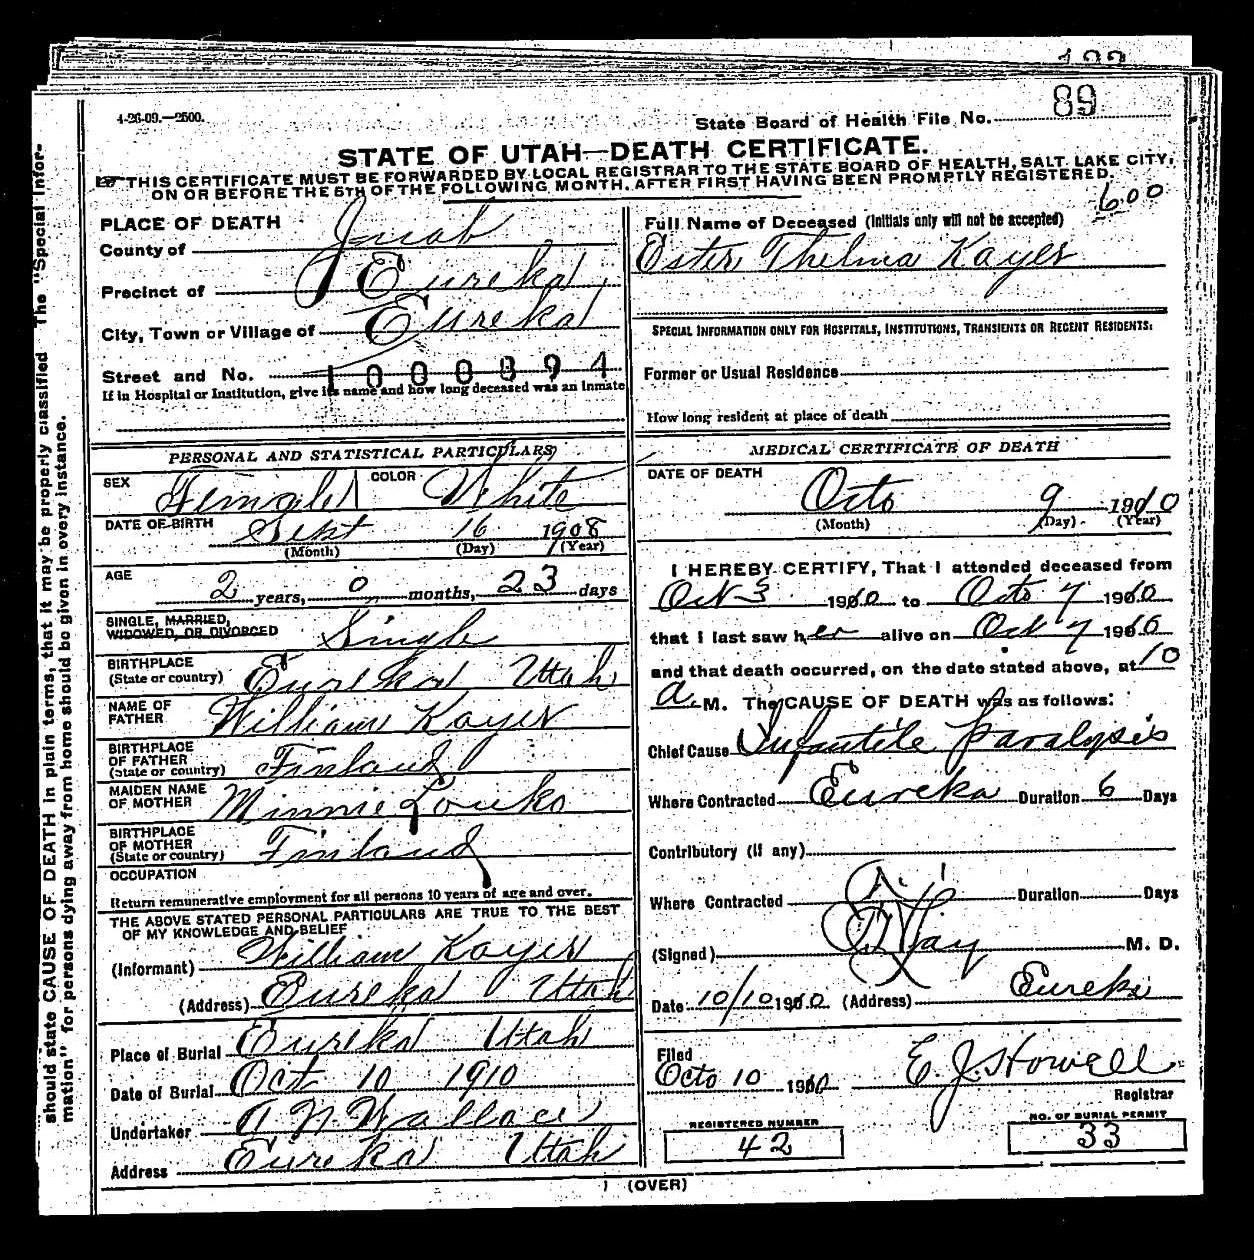 4-26-09.—2500.
State Board of Health File No. 89
STATE OF UTAH—DEATH CERTIFICATE.
THIS CERTIFICATE MUST BE FORWARDED BY LOCAL REGISTRAR TO THE STATE BOARD OF HEALTH, SALT LAKE CITY,
ON OR BEFORE THE 5TH OF THE FOLLOWING MONTH, AFTER FIRST HAVING BEEN PROMPTLY REGISTERED.
600
PLACE OF DEATH
County of Juab
Precinct of Eureka
City, Town or Village of Eureka
Street and No. 1000894
If in Hospital or Institution, give its name and how long deceased was an inmate
Full Name of Deceased (Initials only will not be accepted)
Ester Thelma Kayer
SPECIAL INFORMATION ONLY FOR HOSPITALS, INSTITUTIONS, TRANSIENTS OR RECENT RESIDENTS:
Former or Usual Residence
How long resident at place of death
PERSONAL AND STATISTICAL PARTICULARS
SEX Female COLOR White
DATE OF BIRTH Sept 16 1908
(Month) (Day) (Year)
AGE
2 years, 0 months, 23 days
SINGLE, MARRIED,
WIDOWED, OR DIVORCED Single
BIRTHPLACE
(State or country) Eureka Utah
NAME OF
FATHER William Kayer
BIRTHPLACE
OF FATHER
(State or country) Finland
MAIDEN NAME
OF MOTHER Minnie Louko
BIRTHPLACE
OF MOTHER
(State or country) Finland
OCCUPATION
Return remunerative employment for all persons 10 years of age and over.
THE ABOVE STATED PERSONAL PARTICULARS ARE TRUE TO THE BEST
OF MY KNOWLEDGE AND BELIEF
(Informant) William Kayer
(Address) Eureka Utah
Place of Burial Eureka Utah
Date of Burial Oct 10 1910
Undertaker A N Wallace
Address Eureka Utah
MEDICAL CERTIFICATE OF DEATH
DATE OF DEATH
Octo 9 1910
(Month) (Day) (Year)
I HEREBY CERTIFY, That I attended deceased from
Oct 3 1910 to Octo 7 1910
that I last saw her alive on Oct 7 1910
and that death occurred, on the date stated above, at 10
a. M. The CAUSE OF DEATH was as follows:
Chief Cause Infantile Paralysis
Where Contracted Eureka Duration 6 Days
Contributory (if any)
Where Contracted Duration Days
(Signed) M. D.
Date 10/10 1910 (Address) Eureka
Filed
Octo 10 1910 E. J. Howell
Registrar
REGISTERED NUMBER
42
NO. OF BURIAL PERMIT
33
(OVER)
should state CAUSE OF DEATH in plain terms, that it may be properly classified The "Special Infor-
mation" for persons dying away from home should be given in every instance.